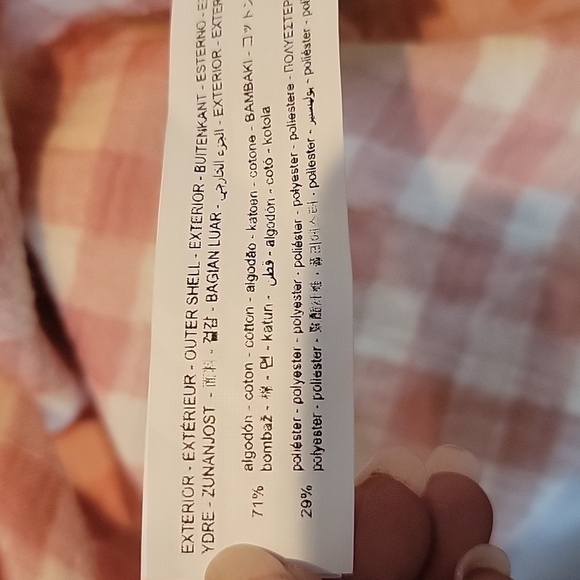 EXTERIOR - EXTÉRIEUR - OUTER SHELL - EXTERIOR - BUITENKANT - ESTERNO -
YDRE - ZUNANJOST - 面料 - 겉감 - BAGIAN LUAR - الجزء الخارجي - EXTERIOR -
71% algodón - coton - cotton - algodão - katoen - cotone - ΒΑΜΒΑΚΙ - コットン
bombaž - 棉 - 면 - katun - قطن - algodón - cotó - kotoia
29% poliéster - polyester - polyester - poliéster - polyester - poliestere - ΠΟΛΥΕΣΤΕΡ
polyester - poliester - 聚酯纤维 - 폴리에스터 - poliester - بوليستير - poliéster